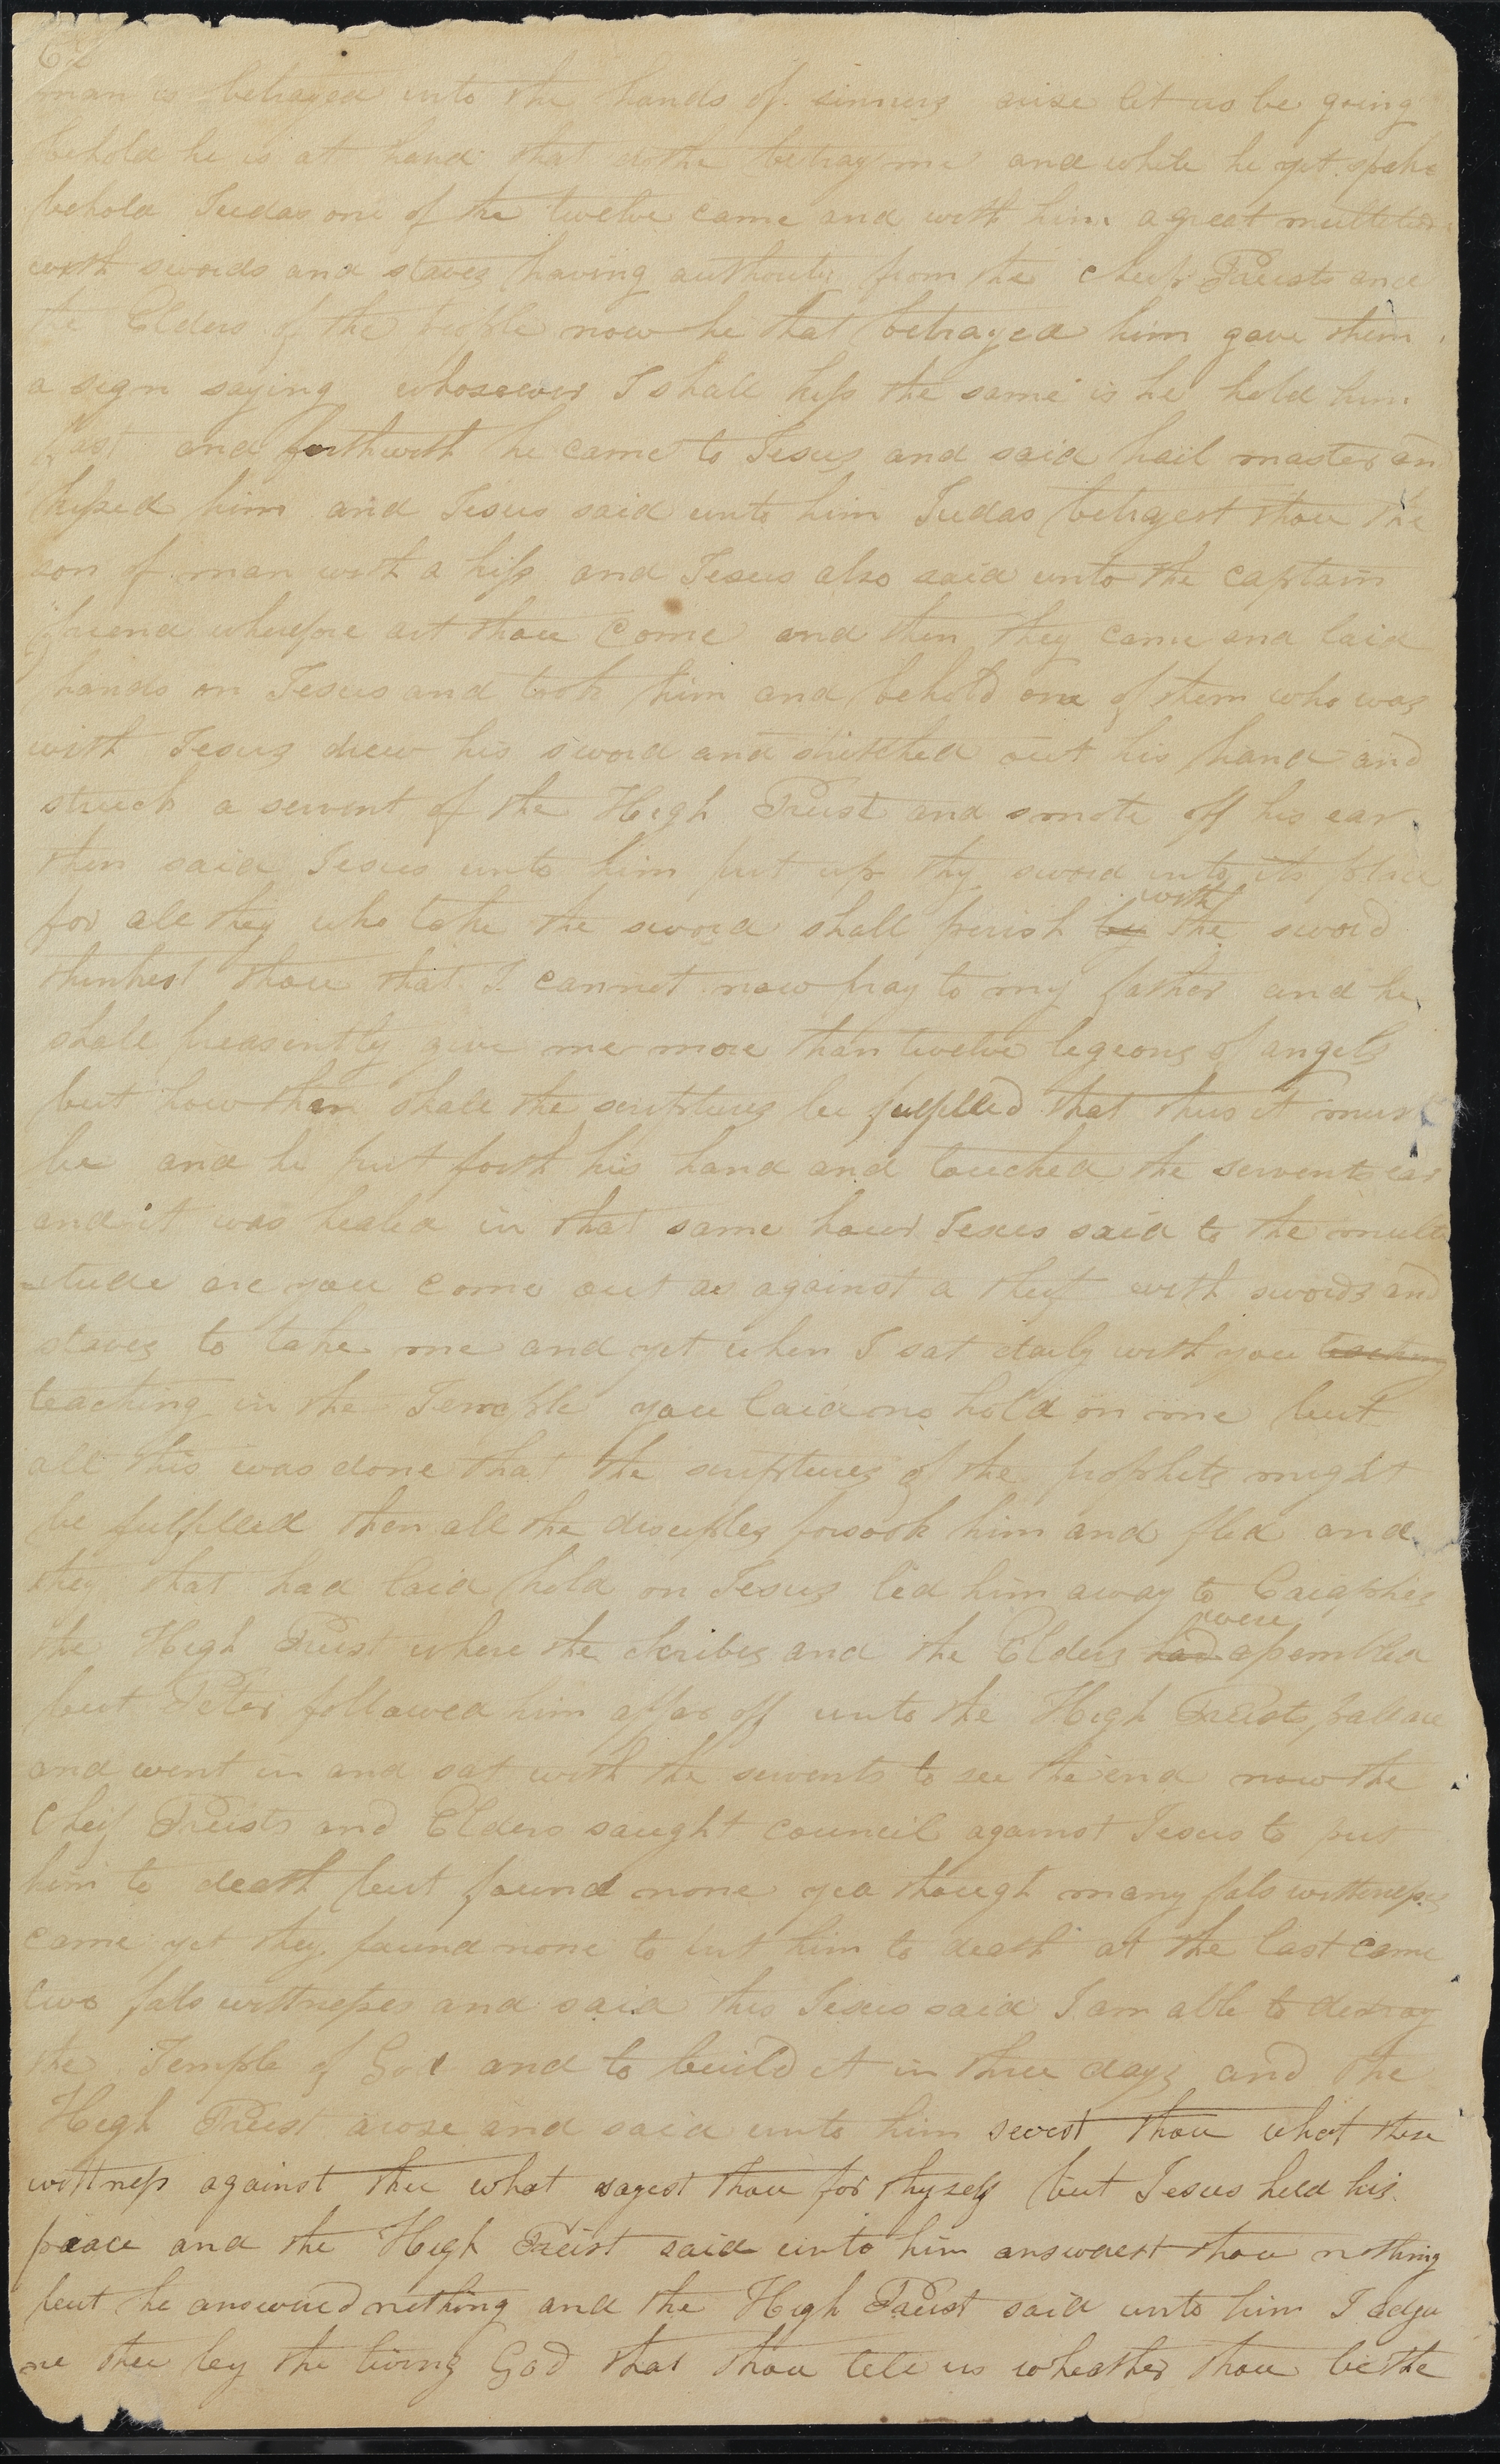 62
man is betrayed into the hands of sinners arise let us be going
behold he is at hand that dothe betray me and while he yet spake
behold Judas one of the twelve came and with him a great multetude
with swords and staves having authouity from the cheif Preists and
the Elders of the people now he that betrayed him gave them
a sign saying whosoever I shall kiss the same is he hold him
fast and forthwith he came to Jesus and said hail master an
kissed him and Jesus said unto him Judas betrayest thou the
son of man with a kiss and Jesus also said unto the captain
friend wherefore art thou come and then they came and laid
hands on Jesus and took him and behold one of them who was
with Jesus drew his sword and stretched out his hand and
struck a servent of the High Preist and smote off his ear
then said Jesus unto him put up thy sword into its place
for all they who take the sword shall perish by with the sword
thinkest thou that I cannot now pray to my father and he
shall preasently give me more than twelve legeons of angels
but how then shall the scriptures be fulfilled that thus it must
be and he put forth his hand and touched the servents ear
and it was healed in that same hour Jesus said to the multi
-tude are you come out as against a theif with swords and
staves to take me and yet when I sat daily with you teaching
teaching in the Temple you laid no hold on me but
all this was done that the scriptures of the prophets might
be fulfilled then all the disciples forsook him and fled and
they that had laid hold on Jesus led him away to Caiaphas
the High Preist where the Scribes and the Elders had were assembled
but Peter followed him affar off unto the High Preists pallace
and went in and sat with the servents to see the end now the
cheif Preists and Elders saught council against Jesus to put
him to death but found none yea though many fals wittnesses
came yet they found none to put him to death at the last came
two fals wittnesses and said this Jesus said I am able to destroy
the Temple of God and to build it in three days and the
High Preist arose and said unto him seeest thou what these
wittness against thee what sayest thou for thyself but Jesus held his
peace and the High Preist said unto him answerest thou nothing
but he answered nothing and the High Preist said unto him I adju
re thee by the living God that thou tell us wheather thou be the